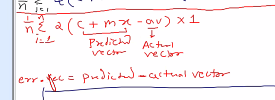 1/n Σ i=1 n 2(c + mx - av) x 1
Predicted Actual
vector vector
err. vec = predicted - actual vector